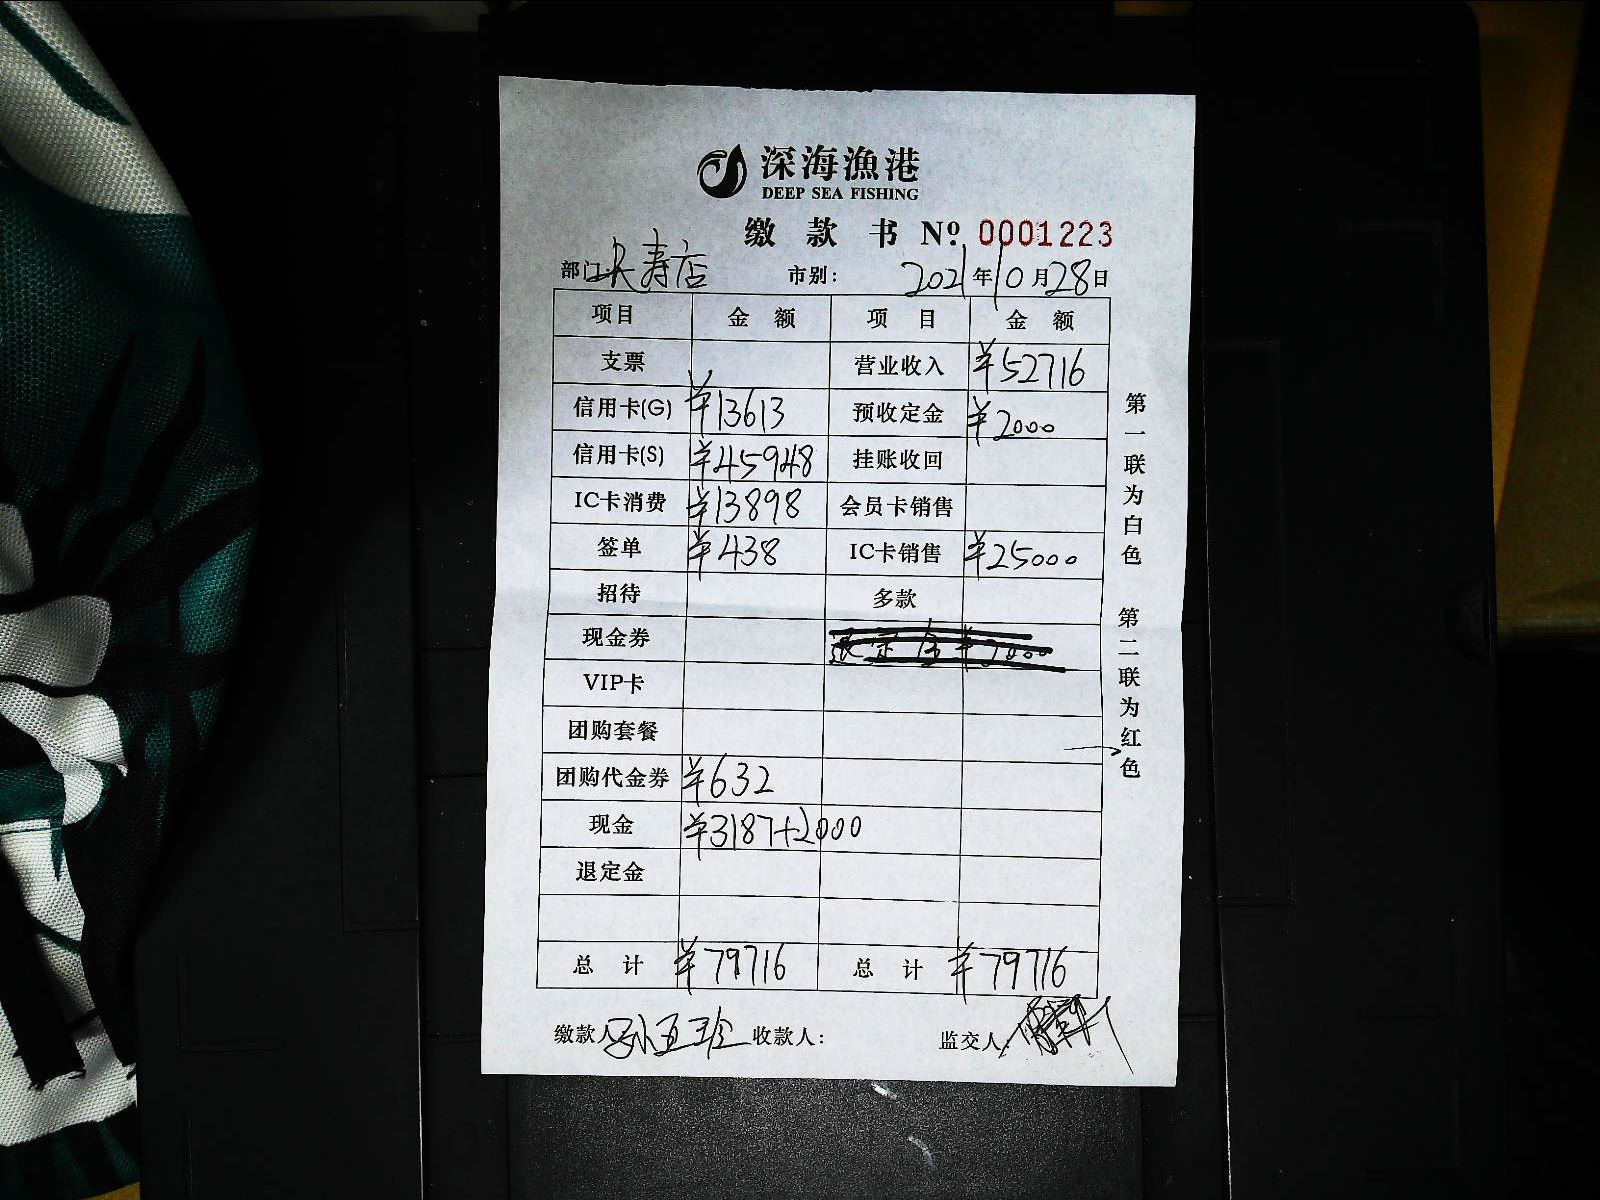 深海漁港
DEEP SEA FISHING
缴款书 Nº. 0001223
部门: 长寿店 市别: 2021年10月28日
项目 金额 项目 金额
支票 营业收入 ¥52716
信用卡(G) ¥13613 预收定金 ¥2000
信用卡(S) ¥45948 挂账收回
IC卡消费 ¥13898 会员卡销售
签单 ¥438 IC卡销售 ¥25000
招待 多款
现金券 退定金 ¥2000
VIP卡
团购套餐
团购代金券 ¥632
现金 ¥3187+2000
退定金
总计 ¥79716 总计 ¥79716
缴款人 孙五珍 收款人: 监交人:
第一联为白色 第二联为红色